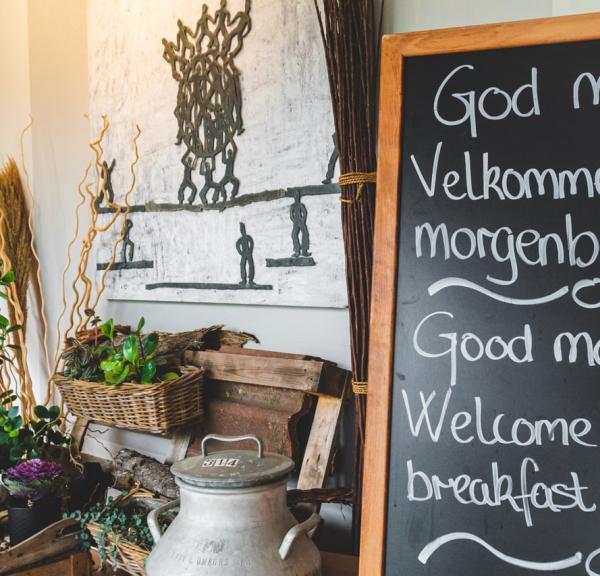 God m
Velkomme
morgenb
Good mo
Welcome
breakfast
514